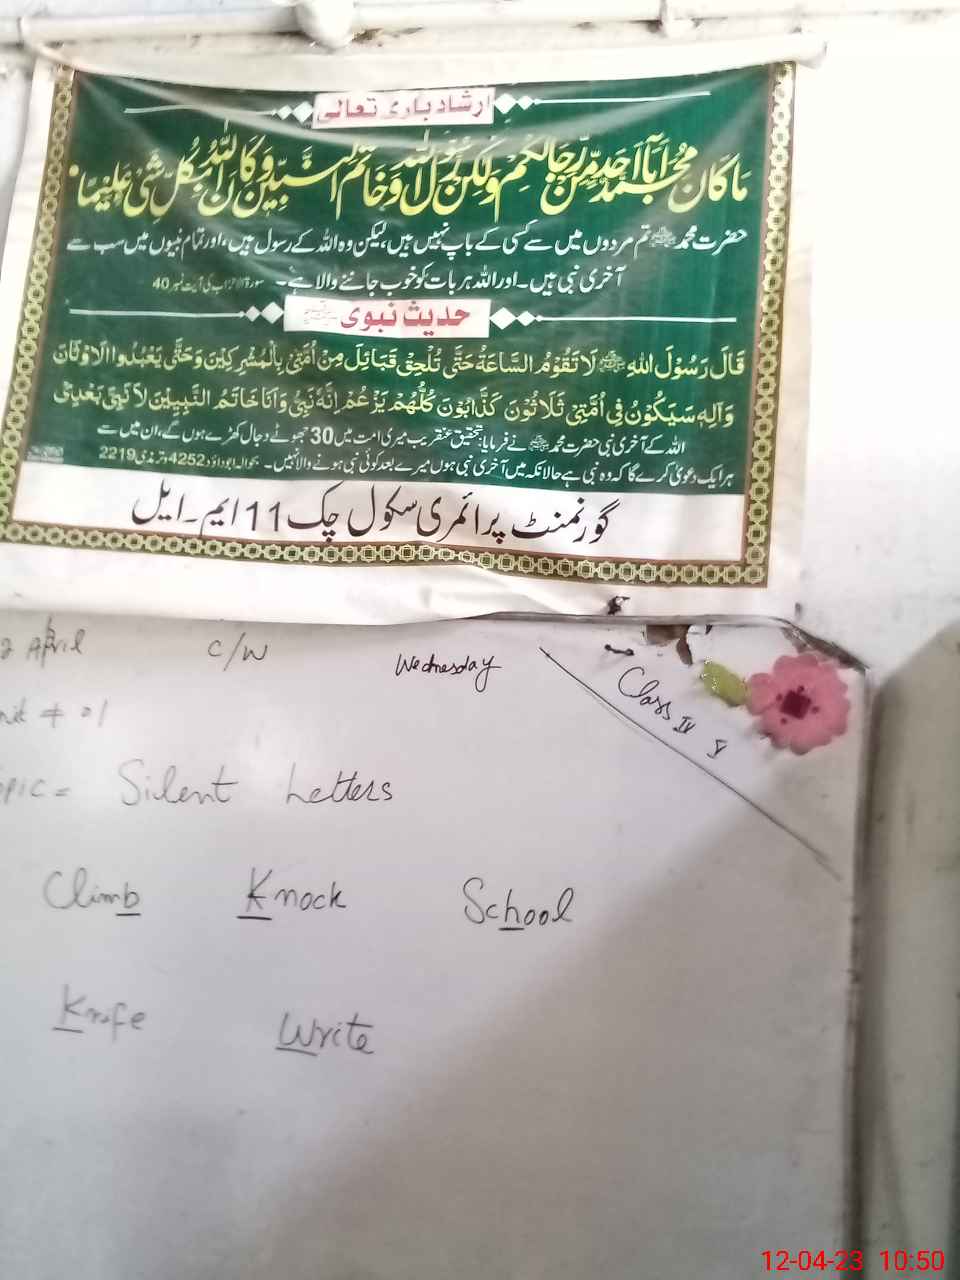 ارشاد باری تعالیٰ
مَا كَانَ مُحَمَّدٌ اَبَاۤ اَحَدٍ مِّنْ رِّجَالِكُمْ وَلٰكِنْ رَّسُوْلَ اللّٰهِ وَخَاتَمَ النَّبِیّٖنَ وَكَانَ اللّٰهُ بِكُلِّ شَیْءٍ عَلِیْمًا
حضرت محمد ﷺ تم مردوں میں سے کسی کے باپ نہیں ہیں، لیکن وہ اللہ کے رسول ہیں، اور تمام نبیوں میں سب سے
آخری نبی ہیں۔ اور اللہ ہر بات کو خوب جاننے والا ہے۔ سورۃ الاحزاب کی آیت نمبر 40
حدیث نبوی ﷺ
قَالَ رَسُوْلَ اللهِ ﷺ لَا تَقُوْمُ السَّاعَةُ حَتَّى تُلْحِقْ قَبَائِلَ مِنْ اُمَّتِىْ بِالْمُشْرِكِيْنَ وَحَتَّى يَعْبُدُوا الْاَوْثَانَ
وَ اٰلِهٖ سَيَكُوْنُ فِى اُمَّتِىْ ثَلَاثُوْنَ كَذَّابُوْنَ كُلُّهُمْ يَزْعُمْ اِنَّهُ نَبِىٌّ وَ اَنَا خَاتَمُ النَّبِيِّيْنَ لَا نَبِىَّ بَعْدِىْ
اللہ کے آخری نبی حضرت محمد ﷺ نے فرمایا: تحقیق عنقریب میری امت میں 30 جھوٹے دجال کھڑے ہوں گے، ان میں سے
ہر ایک دعویٰ کرے گا کہ وہ نبی ہے حالانکہ میں آخری نبی ہوں میرے بعد کوئی نبی ہونے والا نہیں۔ بحوالہ ابوداؤد 4252 و ترمذی 2219
گورنمنٹ پرائمری سکول چک 11 ایم۔ایل
2 April C/W Wednesday
Class IV V
nit # 01
opic = Silent Letters
Climb Knock School
Knife Write
12-04-23 10:50